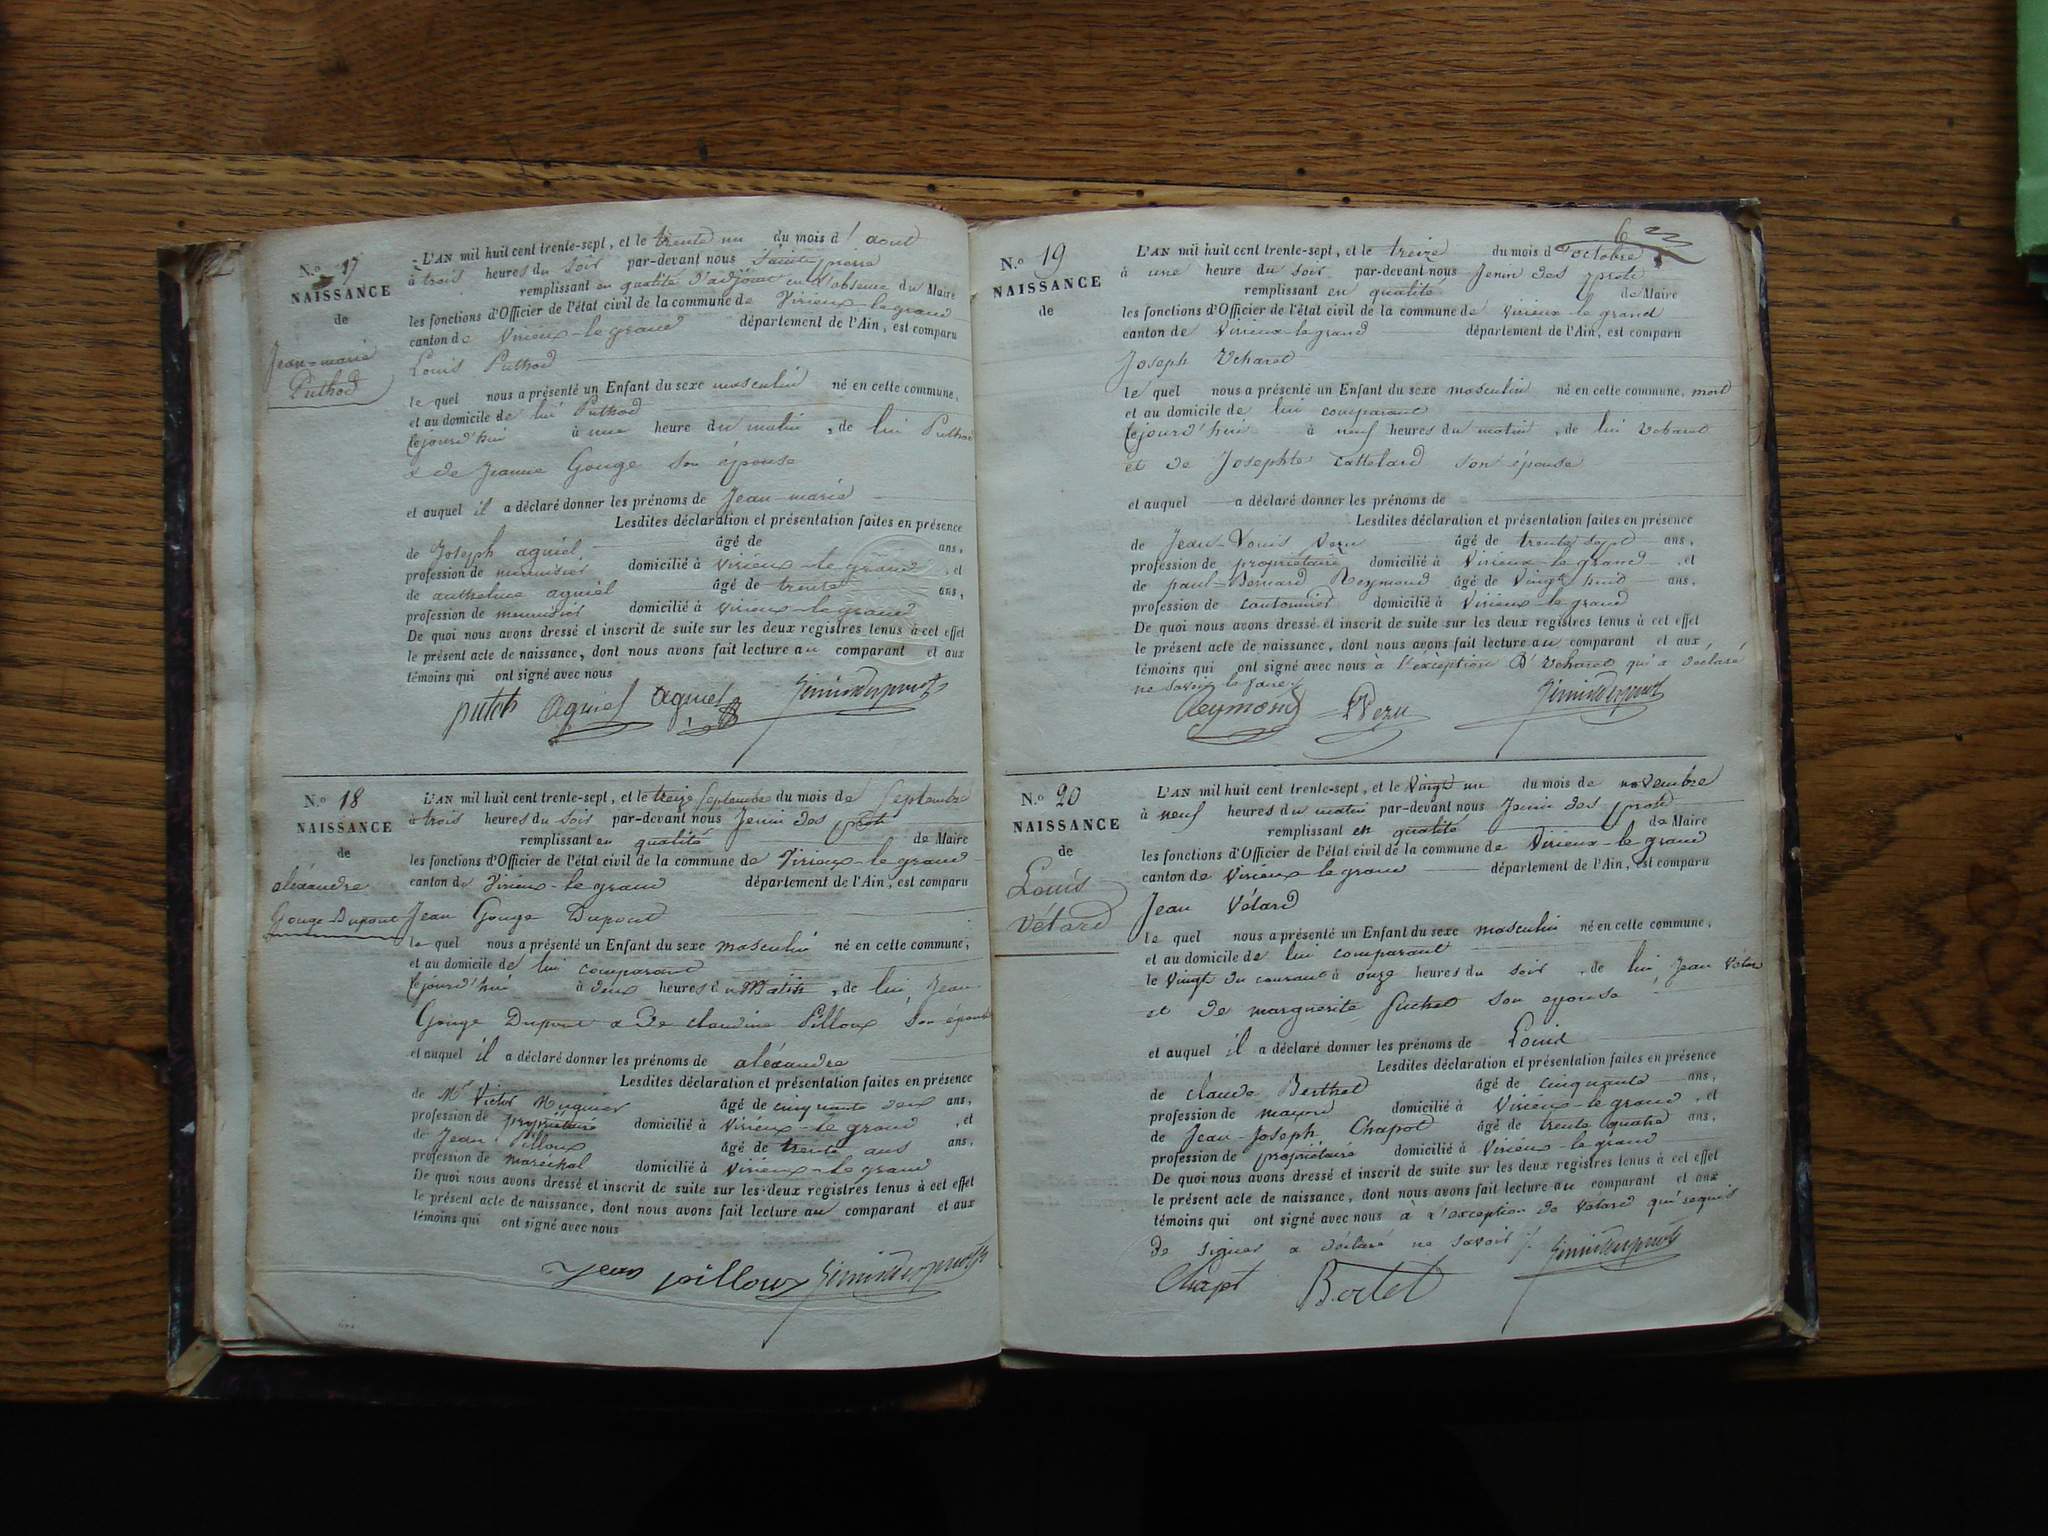 N.o 17
NAISSANCE
de
Jean-marie
Puthod
L'AN mil huit cent trente-sept, et le trente un du mois d'aout
à trois heures du soir par-devant nous
remplissant en qualité d'adjoint en l'absence du Maire
les fonctions d'Officier de l'état civil de la commune de Virieux-le-grand
canton de Virieux-le grand département de l'Ain, est comparu
Louis Puthod
le quel nous a présenté un Enfant du sexe masculin né en cette commune,
et au domicile de lui Puthod
cejourd'hui à une heure du matin, de lui Puthod
& de Jeanne Gouge son épouse
et auquel il a déclaré donner les prénoms de Jean-marie
Lesdites déclaration et présentation faites en présence
de Joseph agniel âgé de ans,
profession de menuisier domicilié à Virieux-le grand, et
de anthelme agniel âgé de trente ans,
profession de menuisier domicilié à Virieux-le grand
De quoi nous avons dressé et inscrit de suite sur les deux registres tenus à cet effet
le présent acte de naissance, dont nous avons fait lecture au comparant et aux
témoins qui ont signé avec nous
putoh Agniel agniel
N.o 18
NAISSANCE
de
aléxandre
Gouge-Dupont
L'AN mil huit cent trente-sept, et le treize Septembre du mois de Septembre
à trois heures du soir par-devant nous Jenin des prots
remplissant en qualité de Maire
les fonctions d'Officier de l'état civil de la commune de Virieux-le grand
canton de Virieux-le grand département de l'Ain, est comparu
Jean Gouge Dupont
le quel nous a présenté un Enfant du sexe masculin né en cette commune,
et au domicile de lui comparant
cejourd'hui à deux heures du Matin, de lui, Jean
Gouge Dupont & De claudine Pilloux son épouse
et auquel il a déclaré donner les prénoms de aléxandre
Lesdites déclaration et présentation faites en présence
de Mr Victor âgé de cinquante deux ans,
profession de propriétaire domicilié à Virieux-le grand, et
de Jean Pilloux âgé de trente ans ans,
profession de maréchal domicilié à Virieux-le grand
De quoi nous avons dressé et inscrit de suite sur les deux registres tenus à cet effet
le présent acte de naissance, dont nous avons fait lecture au comparant et aux
témoins qui ont signé avec nous
Jean pilloux
6
N.o 19
NAISSANCE
de
L'AN mil huit cent trente-sept, et le treize du mois d'octobre
à une heure du soir par-devant nous Jenin des prots
remplissant en qualité de Maire
les fonctions d'Officier de l'état civil de la commune de Virieux-le grand
canton de Virieux-le grand département de l'Ain, est comparu
Joseph
le quel nous a présenté un Enfant du sexe masculin né en cette commune, mort
et au domicile de lui comparant
cejourd'hui à neuf heures du matin, de lui
et de Josephte Cattelard son épouse
et auquel a déclaré donner les prénoms de
Lesdites déclaration et présentation faites en présence
de Jean-Louis Vezu âgé de trente sept ans,
profession de propriétaire domicilié à Virieux-le grand, et
de paul-Bernard Reymond âgé de Vingt huit ans,
profession de cantonnier domicilié à Virieux-le grand
De quoi nous avons dressé et inscrit de suite sur les deux registres tenus à cet effet
le présent acte de naissance, dont nous avons fait lecture au comparant et aux
témoins qui ont signé avec nous à l'exception qui a déclaré
ne savoir le faire
Reymond Vezu
N.o 20
NAISSANCE
de
Louis
Vétard
L'AN mil huit cent trente-sept, et le Vingt un du mois de novembre
à neuf heures du matin par-devant nous Jenin des prots
remplissant en qualité de Maire
les fonctions d'Officier de l'état civil de la commune de Virieux-le grand
canton de Virieux-le grand département de l'Ain, est comparu
Jean Vétard
le quel nous a présenté un Enfant du sexe masculin né en cette commune,
et au domicile de lui comparant
le Vingt du courant à onze heures du soir, de lui, Jean Vétard
et de marguerite Suchet son epouse
et auquel il a déclaré donner les prénoms de Louis
Lesdites déclaration et présentation faites en présence
de claude Berthet âgé de cinquante ans,
profession de maçon domicilié à Virieux-le grand, et
de Jean-Joseph Chapot âgé de trente quatre ans,
profession de propriétaire domicilié à Virieux-le grand
De quoi nous avons dressé et inscrit de suite sur les deux registres tenus à cet effet
le présent acte de naissance, dont nous avons fait lecture au comparant et aux
témoins qui ont signé avec nous à l'exception de Vétard qui requis
de signer a déclaré ne savoir
Chapt Bertet